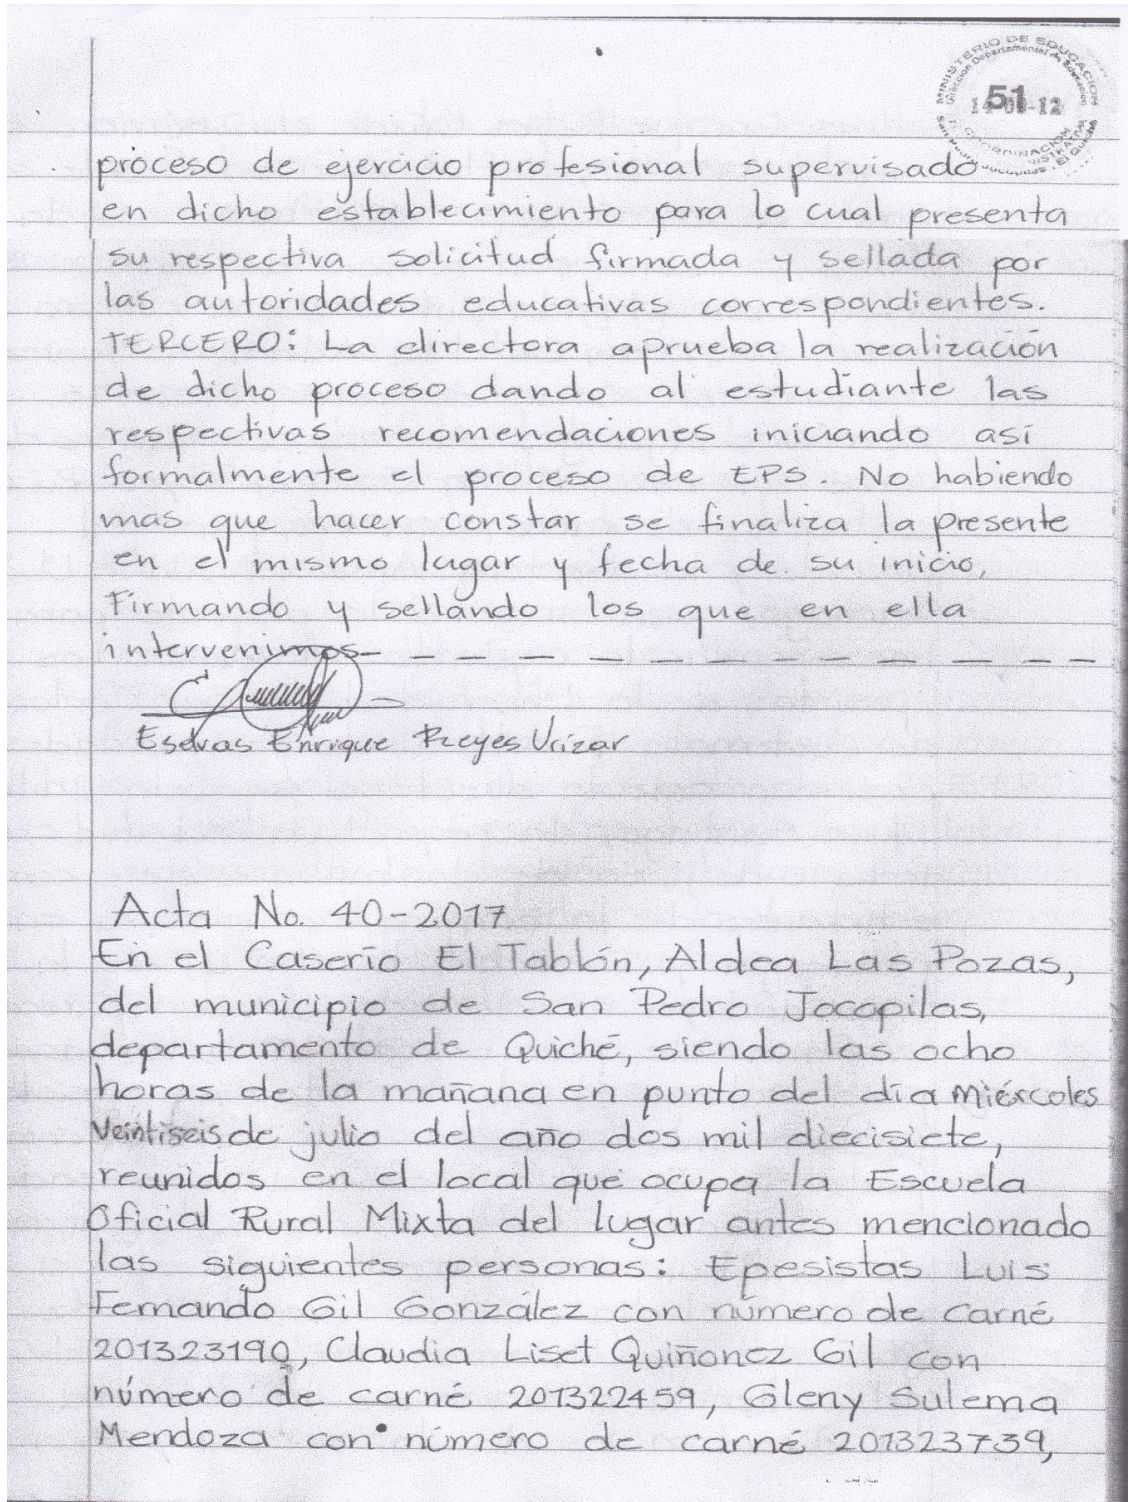 MINISTERIO DE EDUCACION
Dirección Departamental de Educación
51
12
proceso de ejercicio profesional supervisado
en dicho establecimiento para lo cual presenta
su respectiva solicitud firmada y sellada por
las autoridades educativas correspondientes.
TERCERO: La directora aprueba la realización
de dicho proceso dando al estudiante las
respectivas recomendaciones iniciando así
formalmente el proceso de EPS. No habiendo
mas que hacer constar se finaliza la presente
en el mismo lugar y fecha de su inicio,
Firmando y sellando los que en ella
intervenimos
Esdras Enrique Reyes Urizar
Acta No. 40-2017
En el Caserío El Tablón, Aldea Las Pozas,
del municipio de San Pedro Jocopilas,
departamento de Quiché, siendo las ocho
horas de la mañana en punto del día Miércoles
Veintiseis de julio del año dos mil diecisiete,
reunidos en el local que ocupa la Escuela
Oficial Rural Mixta del lugar antes mencionado
las siguientes personas: Epesistas Luis
Fernando Gil González con número de carné
201323190, Claudia Liset Quiñonez Gil con
número de carné 201322459, Gleny Sulema
Mendoza con número de carné 201323739,